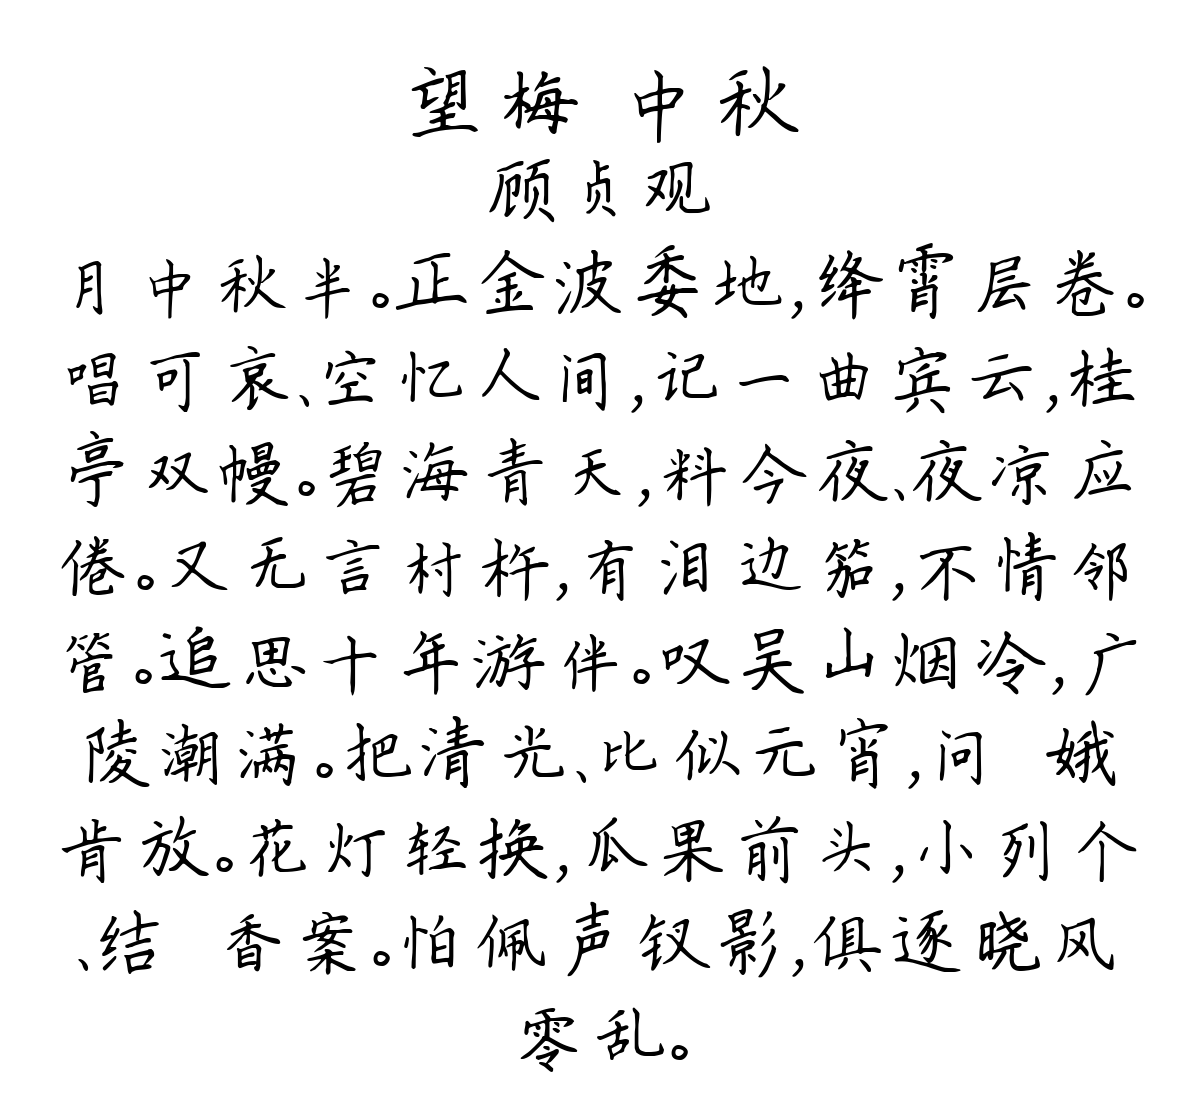 望梅 中秋
顾贞观
月中秋半。正金波委地,绛霄层卷。
唱可哀、空忆人间,记一曲宾云,桂
亭双幔。碧海青天,料今夜、夜凉应
倦。又无言村杵,有泪边笳,不情邻
管。追思十年游伴。叹吴山烟冷,广
陵潮满。把清光、比似元宵,问 娥
肯放。花灯轻换,瓜果前头,小列个
、结 香案。怕佩声钗影,俱逐晓风
零乱。